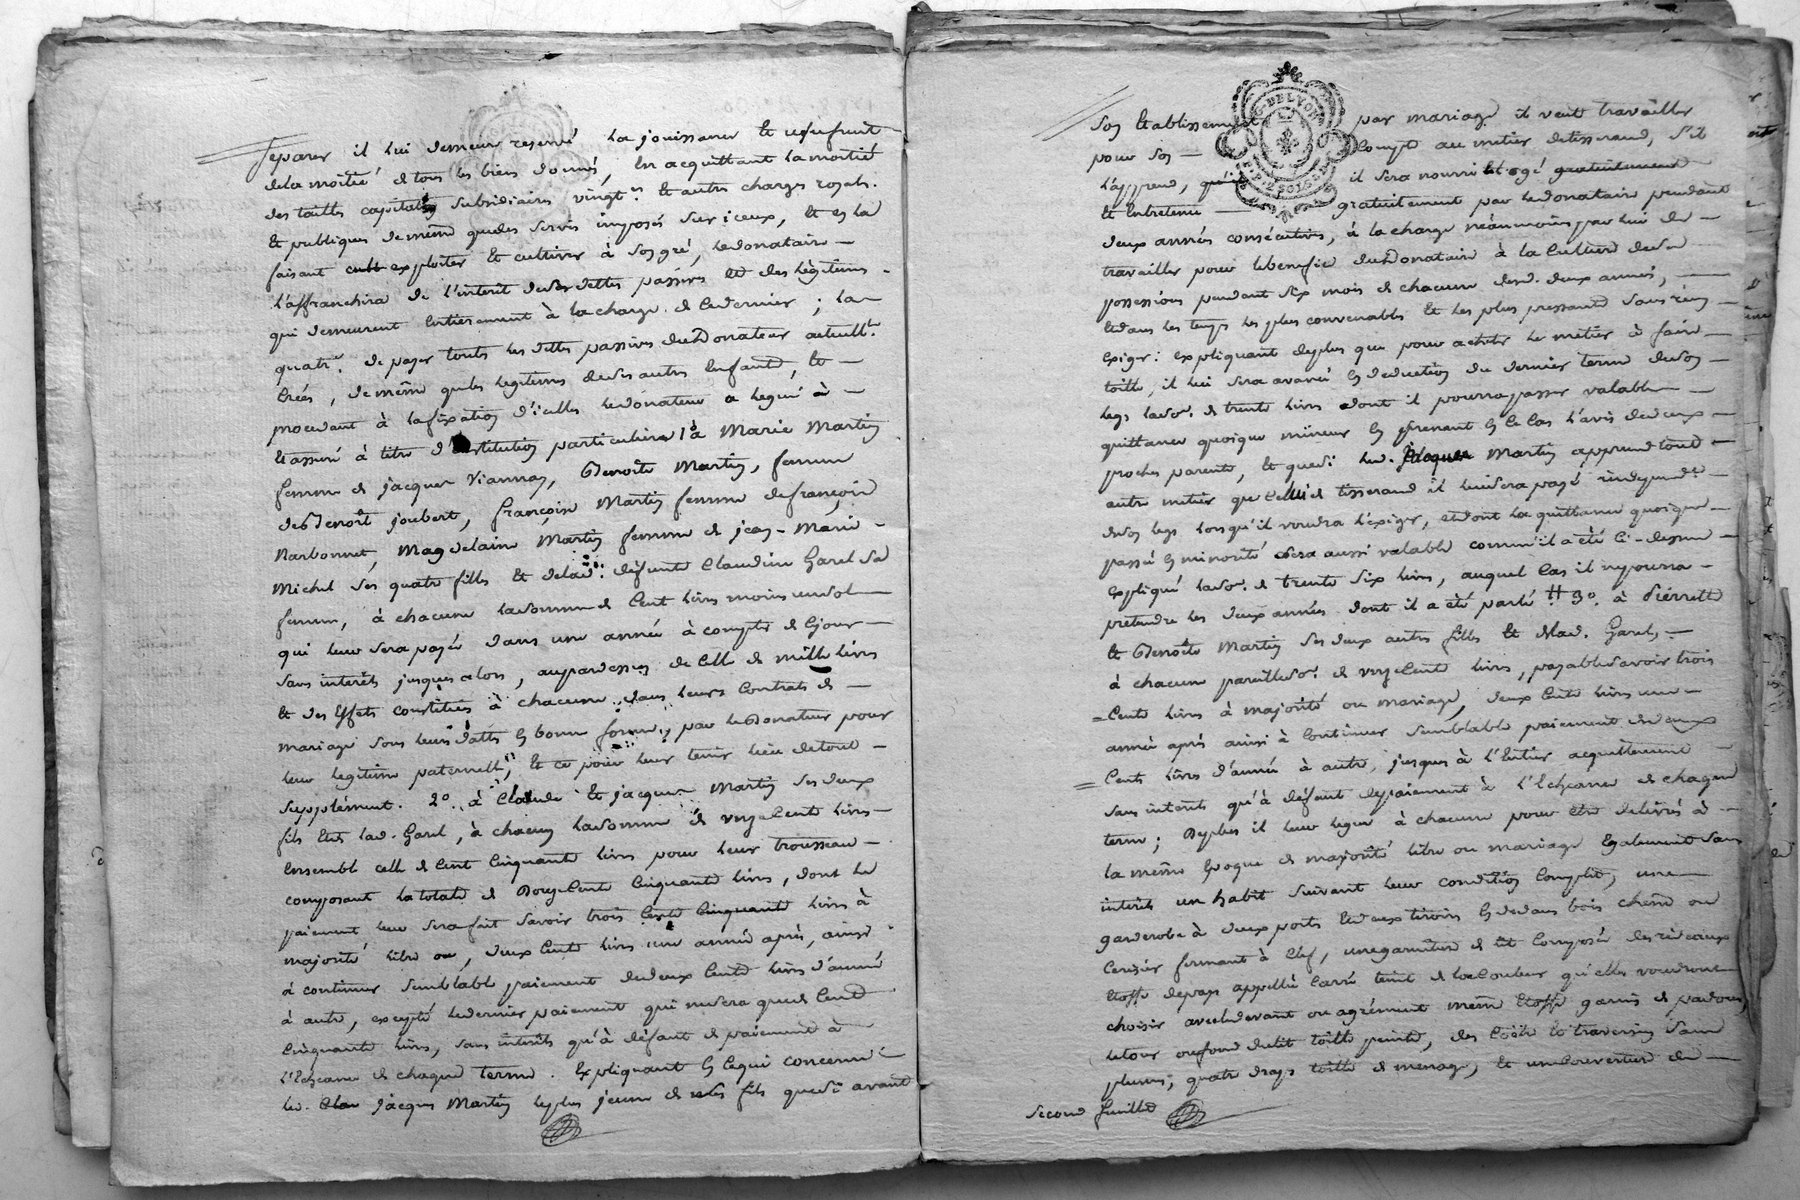 separer il lui demeure reservé la jouissance et usufruit
dela moitié de tous les biens donnés, en acquittant la moitié
des tailles capitat.on subsidiaires vingt.es et autres charges royales
et publiques de meme que des servis imposés sur iceux, et en la
faisant exploiter et cultiver à son gré, ledonataire
l'affranchira de l'interet de ses dettes passives et des légitimes
qui demeurent entierement à la charge de ce dernier ; la
quatr.e de payer toutes les dettes passives du donateur actuell.t
créés, de même que les legitimes de ses autres enfants, et
procedant à la fixation d'icelles le donateur a legué à
et assuré à titre d'institution particuliere 1° à Marie Martin
femme de jacques Viannay, Benoîte Martin, femme
de Benoît joubert, françoise Martin femme de françois
Narbonnet, Magdelaine Martin femme de jean-Marie
Michel ses quatre filles et de lad. défunte Claudine Garel sa
femme, à chacune la somme de cent livres moins un sol
qui leur sera payée dans une année à compter de ce jour
sans interêts jusques alors, aupardessus de celle de mille livres
et des effets constitués à chacune dans leurs contrats de
mariage sous leurs dattes en bonne forme, par le donateur pour
leur legitime paternelle, et ce pour leur tenir lieu de tout
supplément. 2°. à Claude et jacques Martin ses deux
fils et de lad. Garel, à chacun la somme de onze cents livres
ensemble celle de cent cinquante livres pour leur trousseau
composant la totale de Douze cents cinquante livres, dont le
paiement leur sera fait savoir trois cents cinquante livres à
majorité libre ou, deux cents livres une année après, ainsi
à continuer semblable paiement de deux cents livres d'année
à autre, excepté le dernier paiement qui ne sera que de cent
cinquante livres, sans interêts qu'à défaut de paiement à
l'Echeance de chaque terme. Expliquant en ce qui concerne
led. Clau jacques Martin le plus jeune de sesdes fils que si avant
son Etablissement par mariage il veut travailler
pour son compte au metier de tisserand, s'il
l'apprend, qu'il il sera nourri et logé gratuitement
et entretenu gratuitement par le donataire pendant
deux années consécutives, à la charge néanmoins par lui de
travailler pour le benefice du Donataire à la culture de ses
possessions pendant six mois de chacune desd. deux années,
et dans les temps les plus convenables et les plus pressants sans rien
exiger : expliquant de plus que pour acheter le metier à faire
toille, il lui sera avancé en deduction du dernier terme de son
legs la so.e de trente livres dont il pourra passer valable
quittance quoique mineur en prenant en ce cas l'avis de deux
proches parents, et que si led. jacques Martin apprend tout
autre metier que celui de tisserand il lui sera payé
de son legs lorsqu'il voudra l'exiger, et dont la quittance quoique
passé en minorité sera aussi valable comme il a été ci-dessus
expliqué la so.e de trente six livres, auquel cas il ne pourra
pretendre les deux années dont il a été parlé # 3°. à Pierrette
et Benoîte Martin ses deux autres filles et de lad. Garel,
à chacune pareille so.e de onze cents livres, payable savoir trois
cents livres à majorité ou mariage, deux cents livres une
année après ainsi à continuer semblable paiement de deux
cents livres d'année à autre, jusques à l'entier acquittement
sans interêts qu'à défaut de paiement à l'Echeance de chaque
terme ; De plus il leur legue à chacune pour etre delivrés à
la même Epoque de majorité libre ou mariage également sans
interêts un habit suivant leur condition complet, une
garderobe à deux portes et deux tiroirs en dedans bois chêne ou
cerisier fermant à clef, une garniture de lit composée des rideaux
Etoffe de pays appellée carré teint de la couleur qu'elles voudront
choisir avec le devant ou agrément même Etoffe garnis de padoux,
le tour ou fond du lit toille peinte, des coëte et traversin sans
plumes, quatre draps toille de menage, et une couverture de
second feuillet
DE LYON
G.P. 2 SOLS